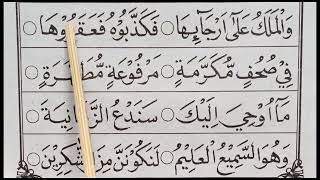 وَالْمَلَكُ عَلٰٓى اَرْجَآئِهَا ○ فَكَذَّبُوْهُ فَعَقَرُوْهَا ○
فِيْ صُحُفٍ مُّكَرَّمَةٍ ○ مَرْفُوْعَةٍ مُّطَهَّرَةٍ ○
مَآ اُوْحِيَ اِلَيْكَ ○ سَنَدْعُ الزَّبَانِيَةَ ○
وَهُوَ السَّمِيْعُ الْعَلِيْمُ ○ لَنَكُوْنَنَّ مِنَ الشّٰكِرِيْنَ ○